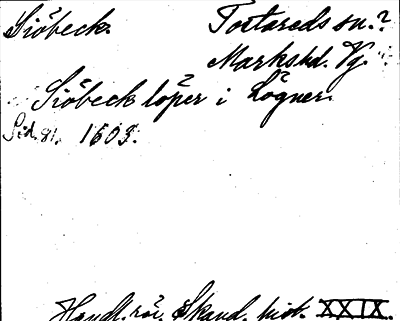 Siöbeck. Tostareds sn.?
Markshd. Vg.
Siöbeck löper i Lögner.
Sid. 81. 1603.
Handl. rör. Skand. hist. XXIX.